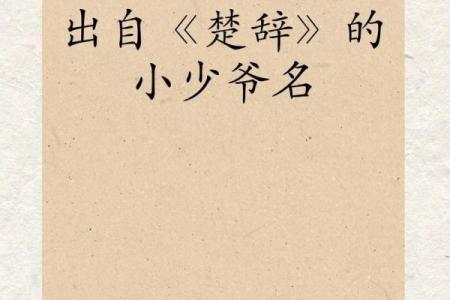 出自《楚辞》的
小少爷名